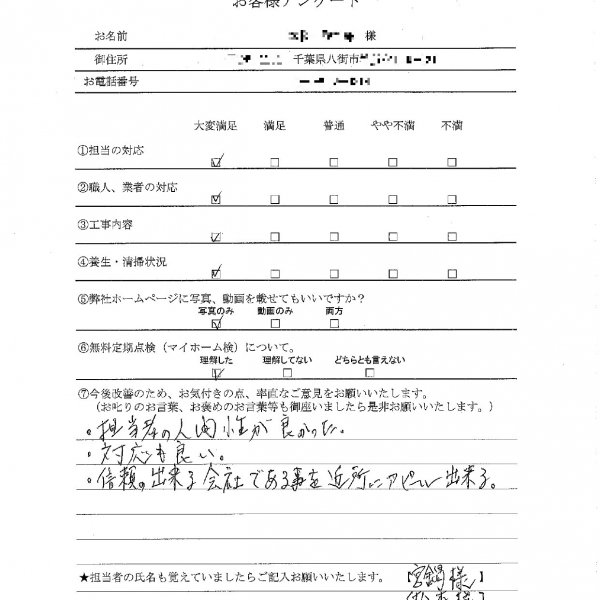 お客様アンケート
お名前 様
御住所 千葉県八街市
お電話番号
大変満足 満足 普通 やや不満 不満
①担当の対応
②職人、業者の対応
③工事内容
④養生・清掃状況
⑤弊社ホームページに写真、動画を載せてもいいですか？
写真のみ 動画のみ 両方
⑥無料定期点検（マイホーム検）について。
理解した 理解してない どちらとも言えない
⑦今後改善のため、お気付きの点、率直なご意見をお願いいたします。
（お叱りのお言葉、お褒めのお言葉等も御座いましたら是非お願いいたします。）
・担当者の人間性が良かった。
・対応も良い。
・信頼の出来る会社である事を近所にアピール出来る。
★担当者の氏名も覚えていましたらご記入お願いいたします。 【宮鍋様】